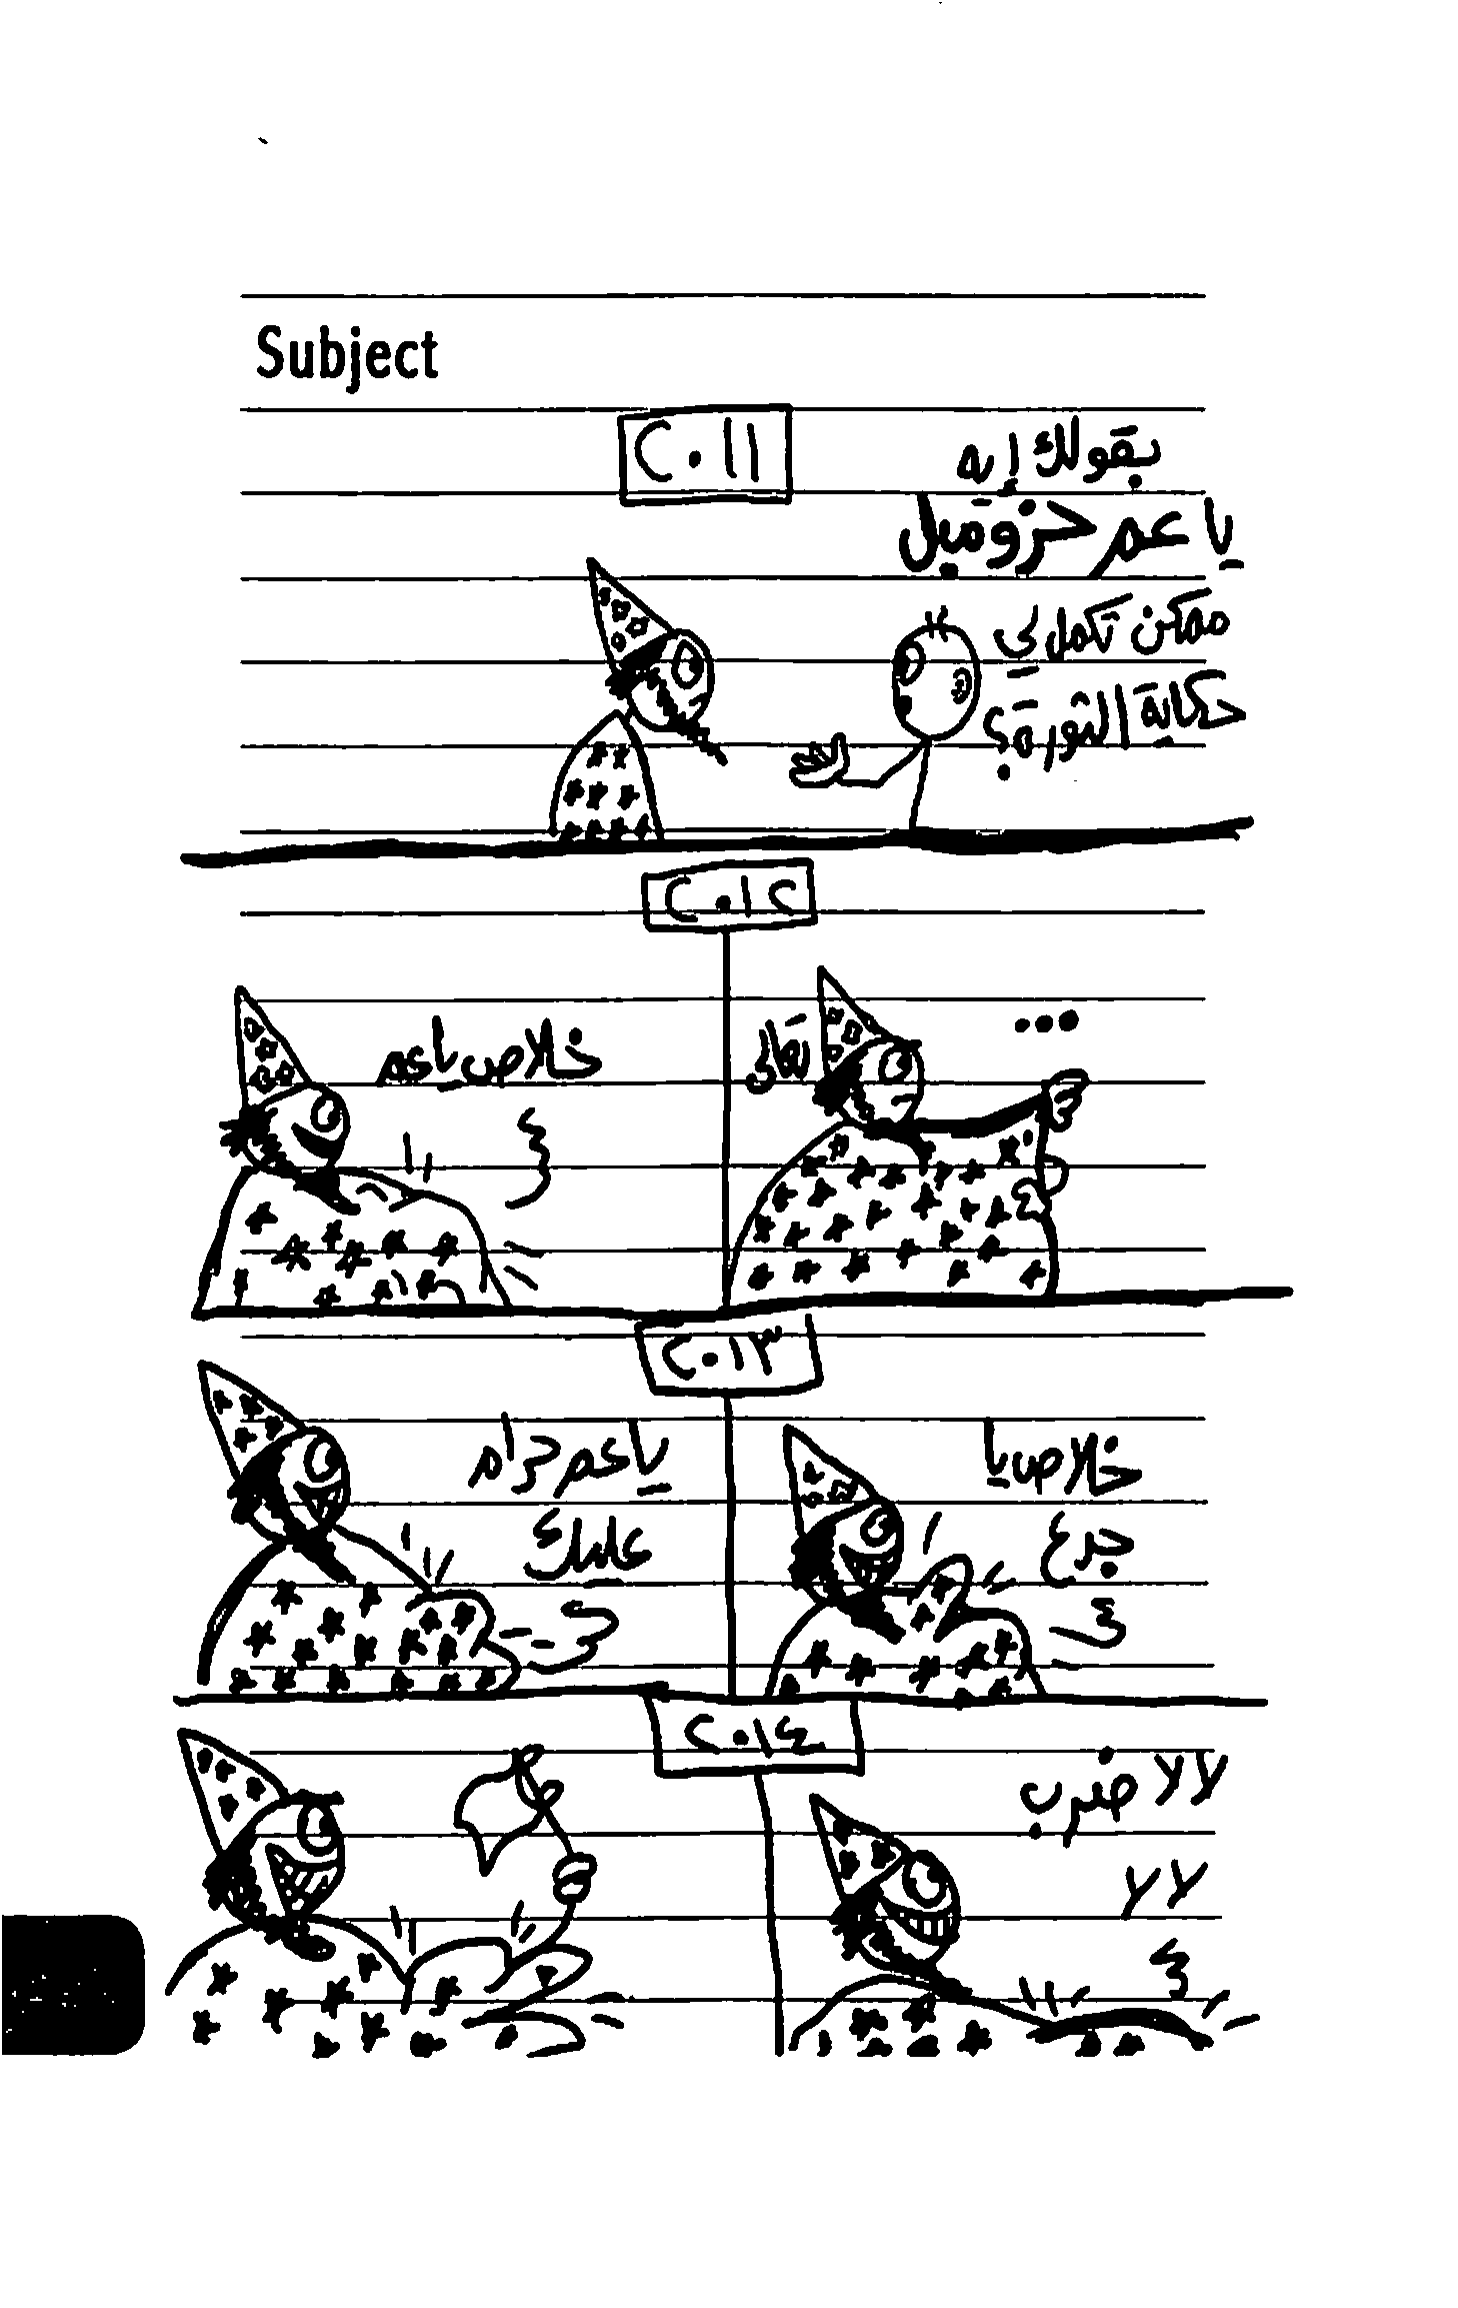 Subject
٢٠١١
بقولك إيه
يا عم حزومبل
ممكن تكمل لي
حكاية الثورة؟
٢٠١٢
...
تعالى
خلاص يا عم
٢٠١٣
خلاص يا
جدع
يا عم حرام
عليك
٢٠١٤
لا لا ضرب
لا لا